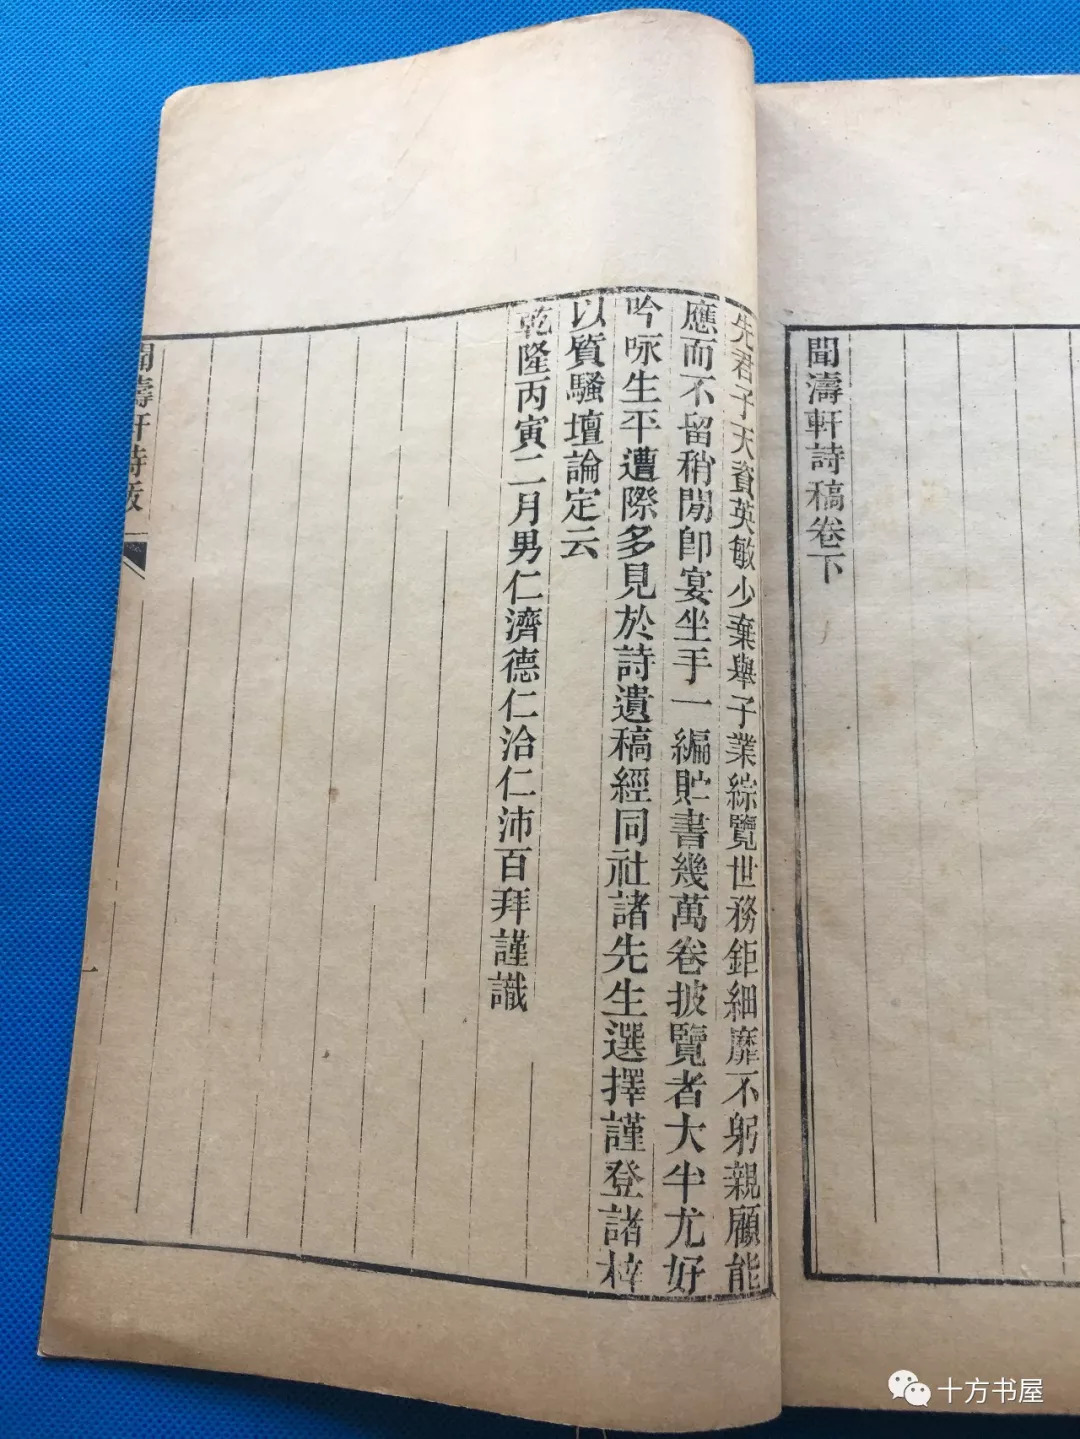 聞濤軒詩稿卷下
先君子天資英敏少棄舉子業綜覽世務鉅細靡不躬親顧能
應而不留稍閒卽宴坐手一編貯書幾萬卷披覽者大半尤好
吟咏生平遭際多見於詩遺稿經同社諸先生選擇謹登諸梓
以質騷壇論定云
乾隆丙寅二月男仁濟德仁洽仁沛百拜謹識
聞濤軒詩跋
一
十方书屋